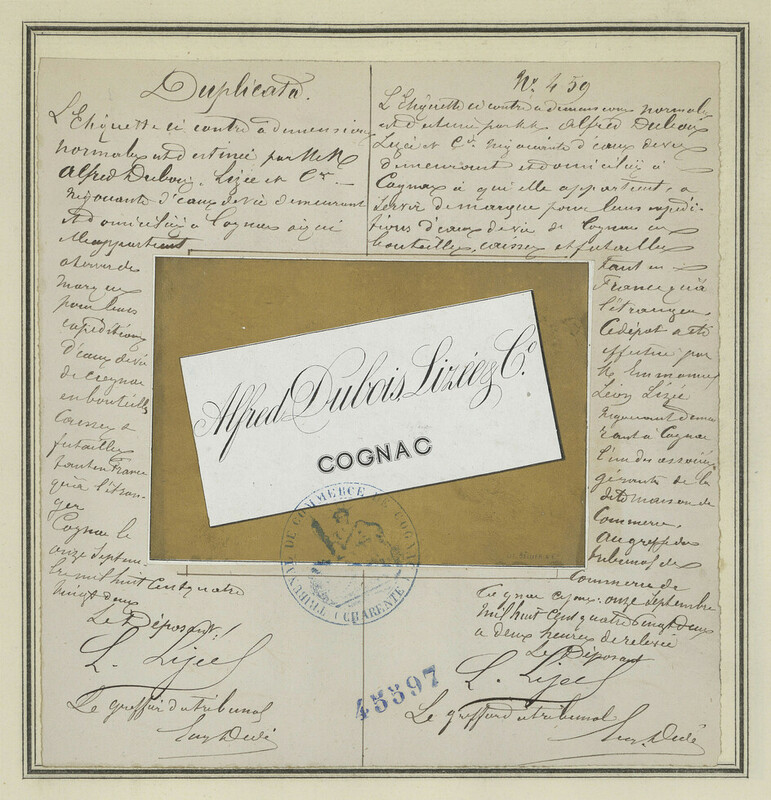 Duplicata.
L'Etiquette ci contre a dimensions
normales est destinée par MM
Alfred Dubois, Lizée et Cie
négociants d'eaux de vie demeurant
et domiciliés à Cognac à qui
elle appartient
a servir de
marque
pour leurs
expéditions
d'eaux de vie
de Cognac
en bouteilles
caisses et
futailles
tant en France
qu'à l'étran-
ger
Cognac le
onze septem
bre mil huit cent quatre
vingt deux
Le Déposant
L. Lizée
Le greffier du tribunal
No 459
L'Etiquette ci contre a dimensions normales
est destinée par MM Alfred Dubois
Lizée et Cie négociants d'eaux de vie
demeurant et domiciliés à
Cognac à qui elle appartient, a
servir de marque pour leurs expédi-
tions d'eaux de vie de Cognac en
bouteilles, caisses et futailles
tant en
France qu'à
l'étranger
Ce dépôt a été
effectué par
M. Emmanuel
Léon Lizée
négociant demeu
rant à Cognac
l'un des associés
gérants de la
dite maison de
Commerce,
au greffe du
tribunal de
Commerce de
Cognac ce jour onze septembre
mil huit cent quatre vingt deux
a deux heures de relevée
Le Déposant
L. Lizée
Le greffier du tribunal
Alfred Dubois, Lizée & Co.
COGNAC
TRIBUNAL DE COMMERCE DE COGNAC
(CHARENTE)
45597